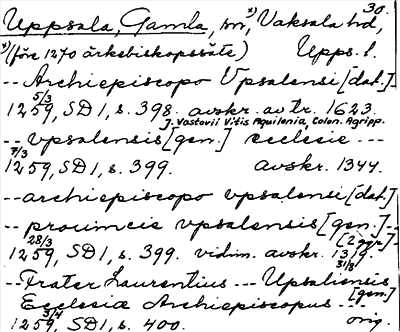 30.
Uppsala, Gamla, sn, ¹⁾ Vaksala hd,
¹⁾(före 1270 ärkebiskopssäte) Upps. l.
-- Archiepiscopo Vpsalensi [dat.]
5/3
1259, SD 1, s. 398. avskr. av tr. 1623.
J. Vastovii Vitis Aquilonia, Colon. Agripp.
-- vpsalensis [gen.] ecclesie ---
7/3
1259, SD 1, s. 399. avskr. 1344.
-- archiepiscopo vpsalensi [dat.]
-- prouincie vpsalensis [gen.] --
28/3 [2 ggr]
1259, SD 1, s. 399. vidim. avskr. 1319.
31/8
-- Frater Laurentius --- Upsaliensis
Ecclesiæ Archiepiscopus -- [gen.]
3/4
1259, SD 1, s. 400. orig.